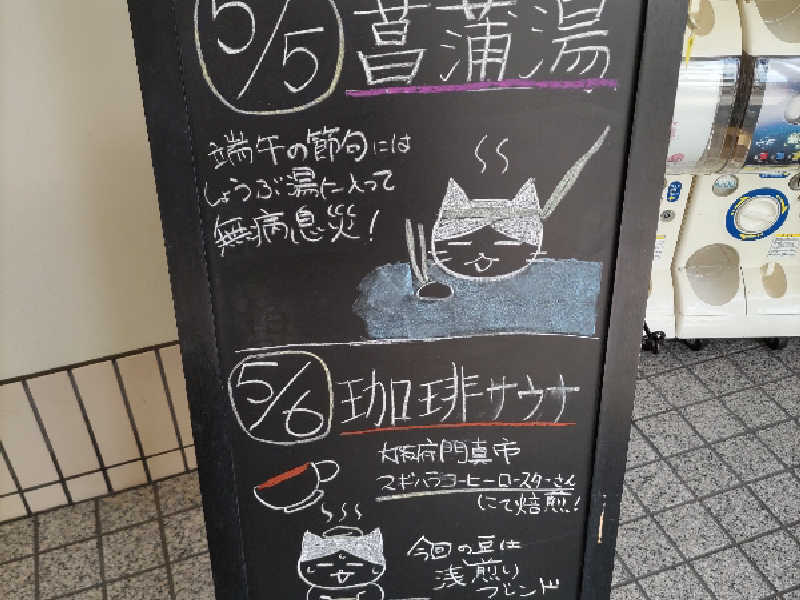 5/5 菖蒲湯
端午の節句には
しょうぶ湯に入って
無病息災!
5/6 珈琲サウナ
大阪府門真市
スギハラコーヒーロースターさん
にて焙煎!
今回の豆は
浅煎り
ブレンド